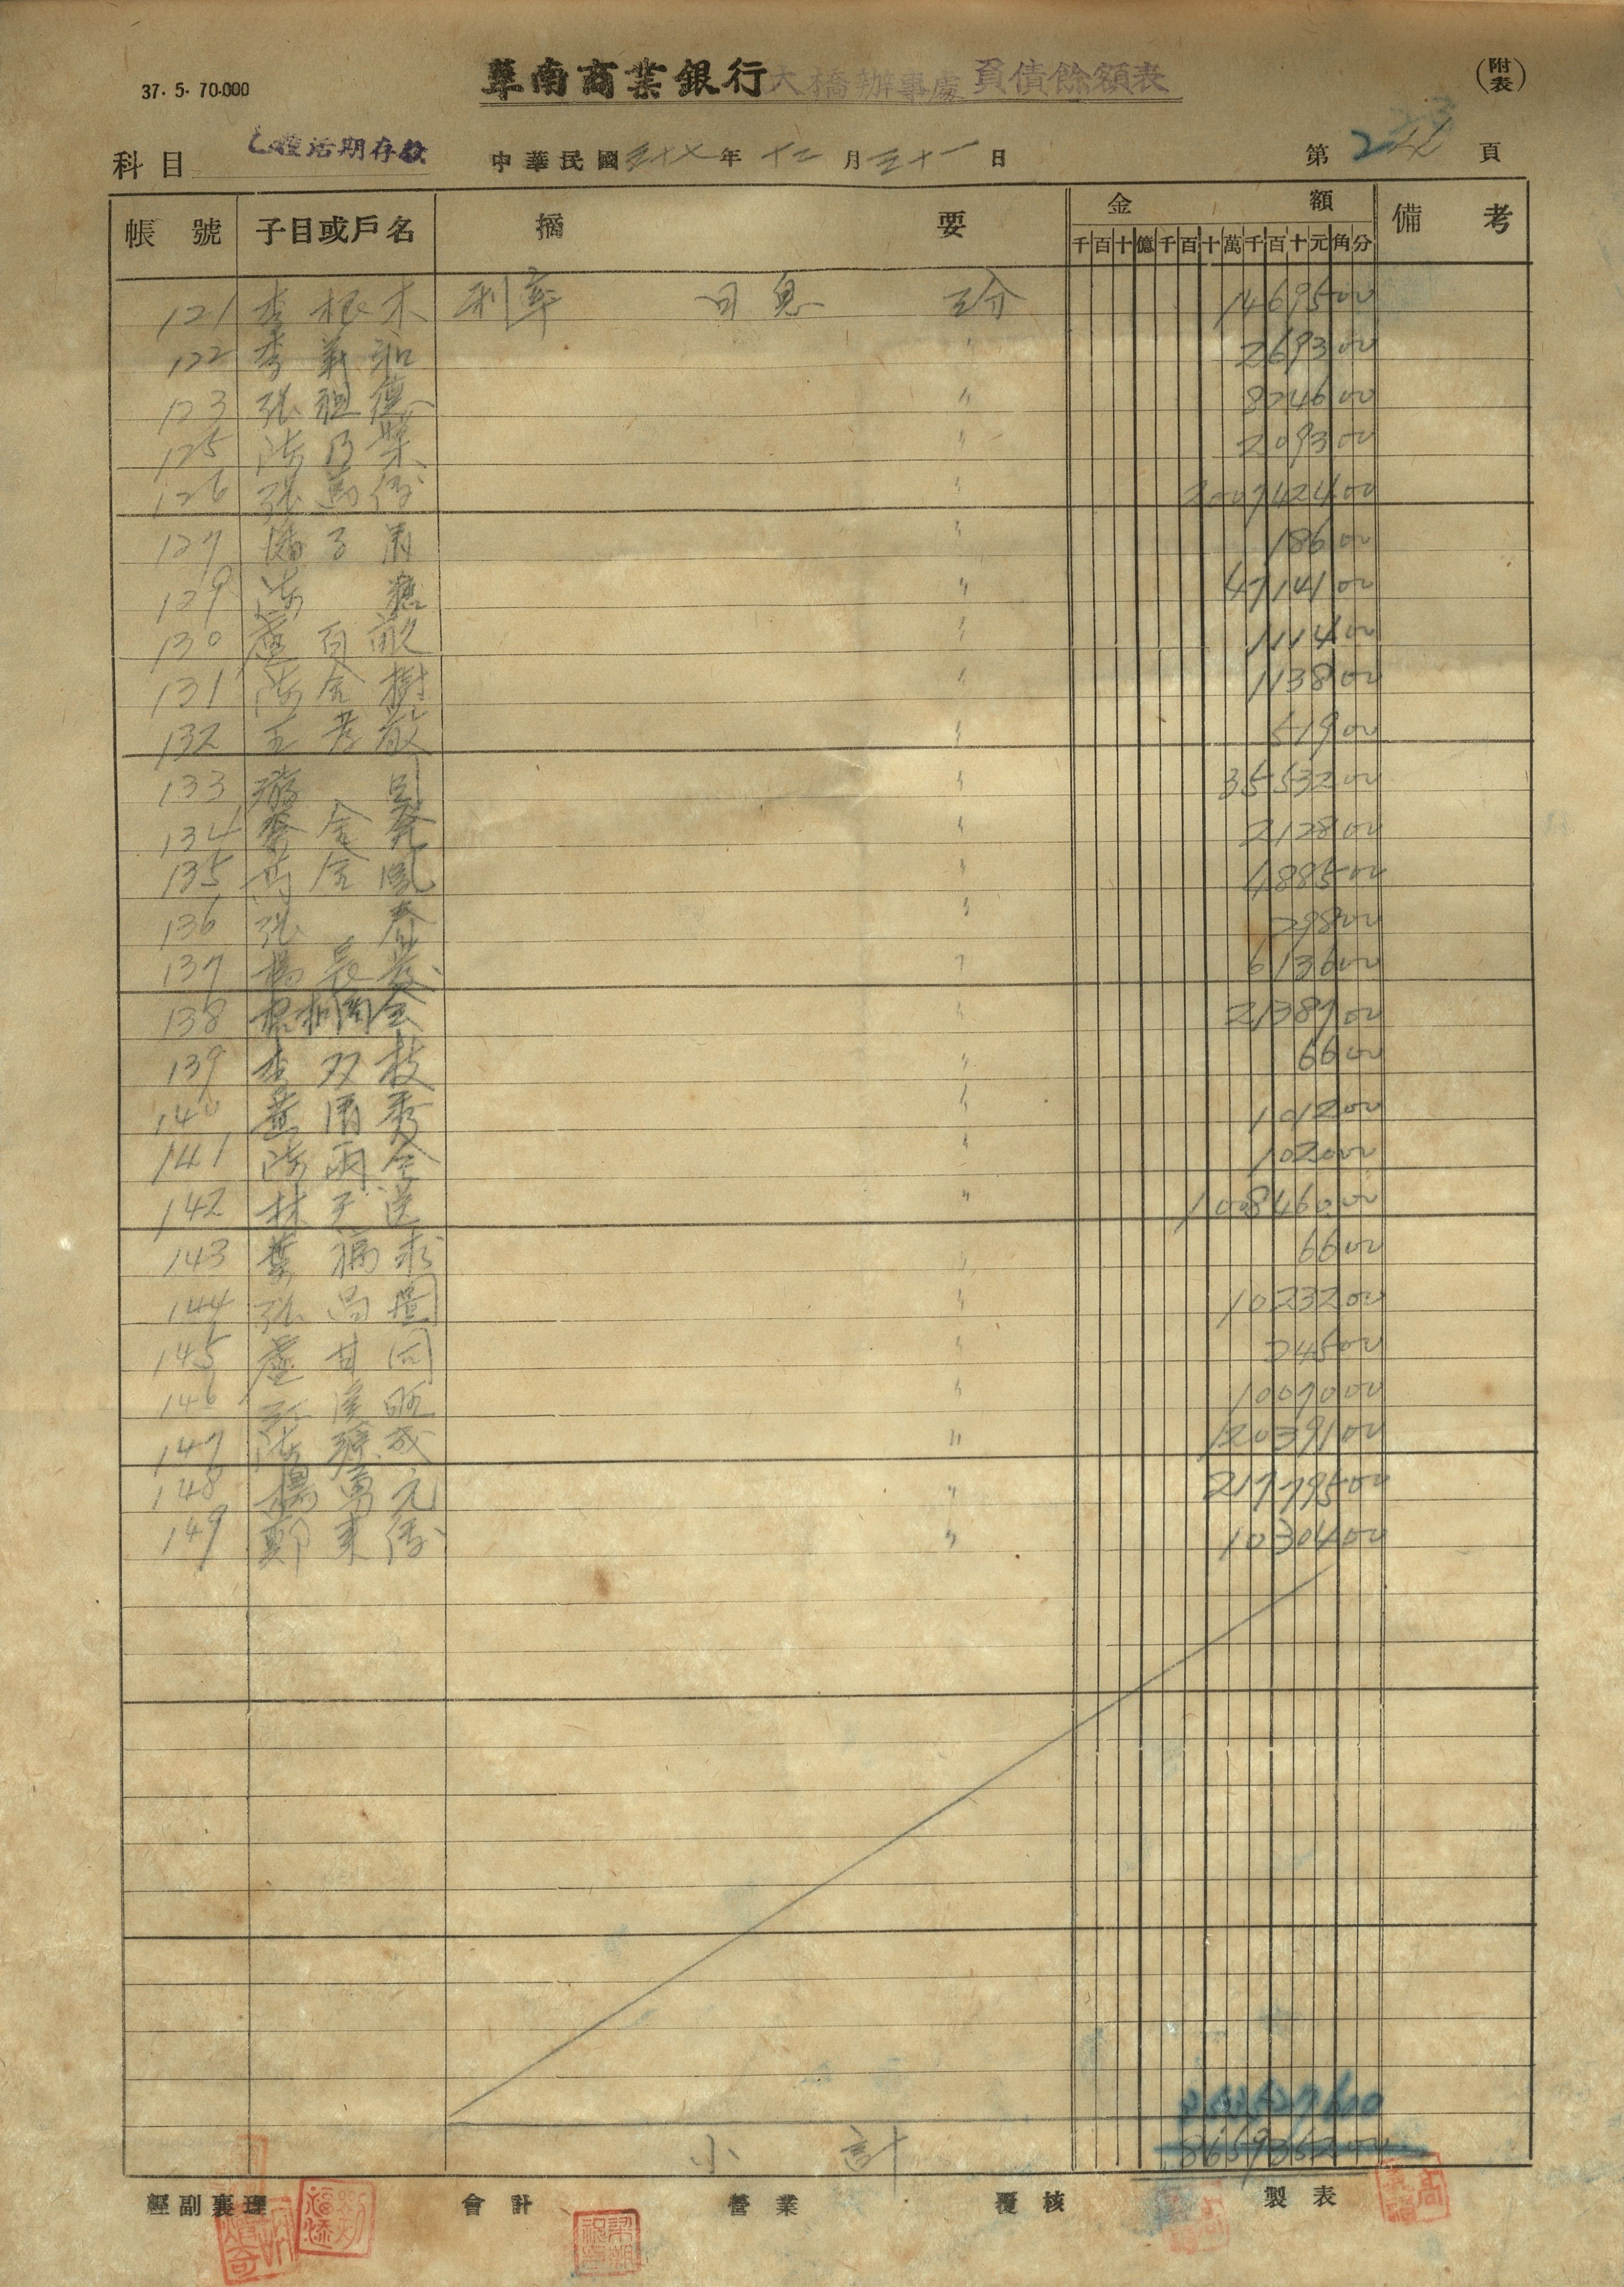 37. 5. 70.000
華南商業銀行大橋辦事處負債餘額表
(附表)
科目 乙種活期存款 中華民國三十七年十二月三十一日 第 頁
帳號 子目或戶名 摘要 金額 備考
千百十億千百十萬千百十元角分
121 李根木 利率 日息 五分 1469500
122 李義和 〃 269300
123 張祖德 〃 824600
125 陳乃榮 〃 209300
126 張萬傳 〃 200742400
127 潘子清 〃 18600
129 陳 〃 4714100
130 盧百 〃 111400
131 陳金樹 〃 113800
132 王孝敬 〃 51900
133 〃 3553200
134 蔡金 〃 212800
135 高金鳳 〃 488500
136 張春 〃 29800
137 楊長發 〃 613600
138 〃 2138700
139 李双枝 〃 6600
140 黃清秀 〃 101200
141 陳雨今 〃 102000
142 林天送 〃 100846000
143 葉福 〃 6600
144 張昌 〃 1023200
145 盧甘同 〃 24500
146 〃 1007000
147 陳 成 〃 12039100
148 楊萬元 〃 21779500
149 鄭東 〃 1030400
小計
經副襄理 會計 營業 覆核 製表